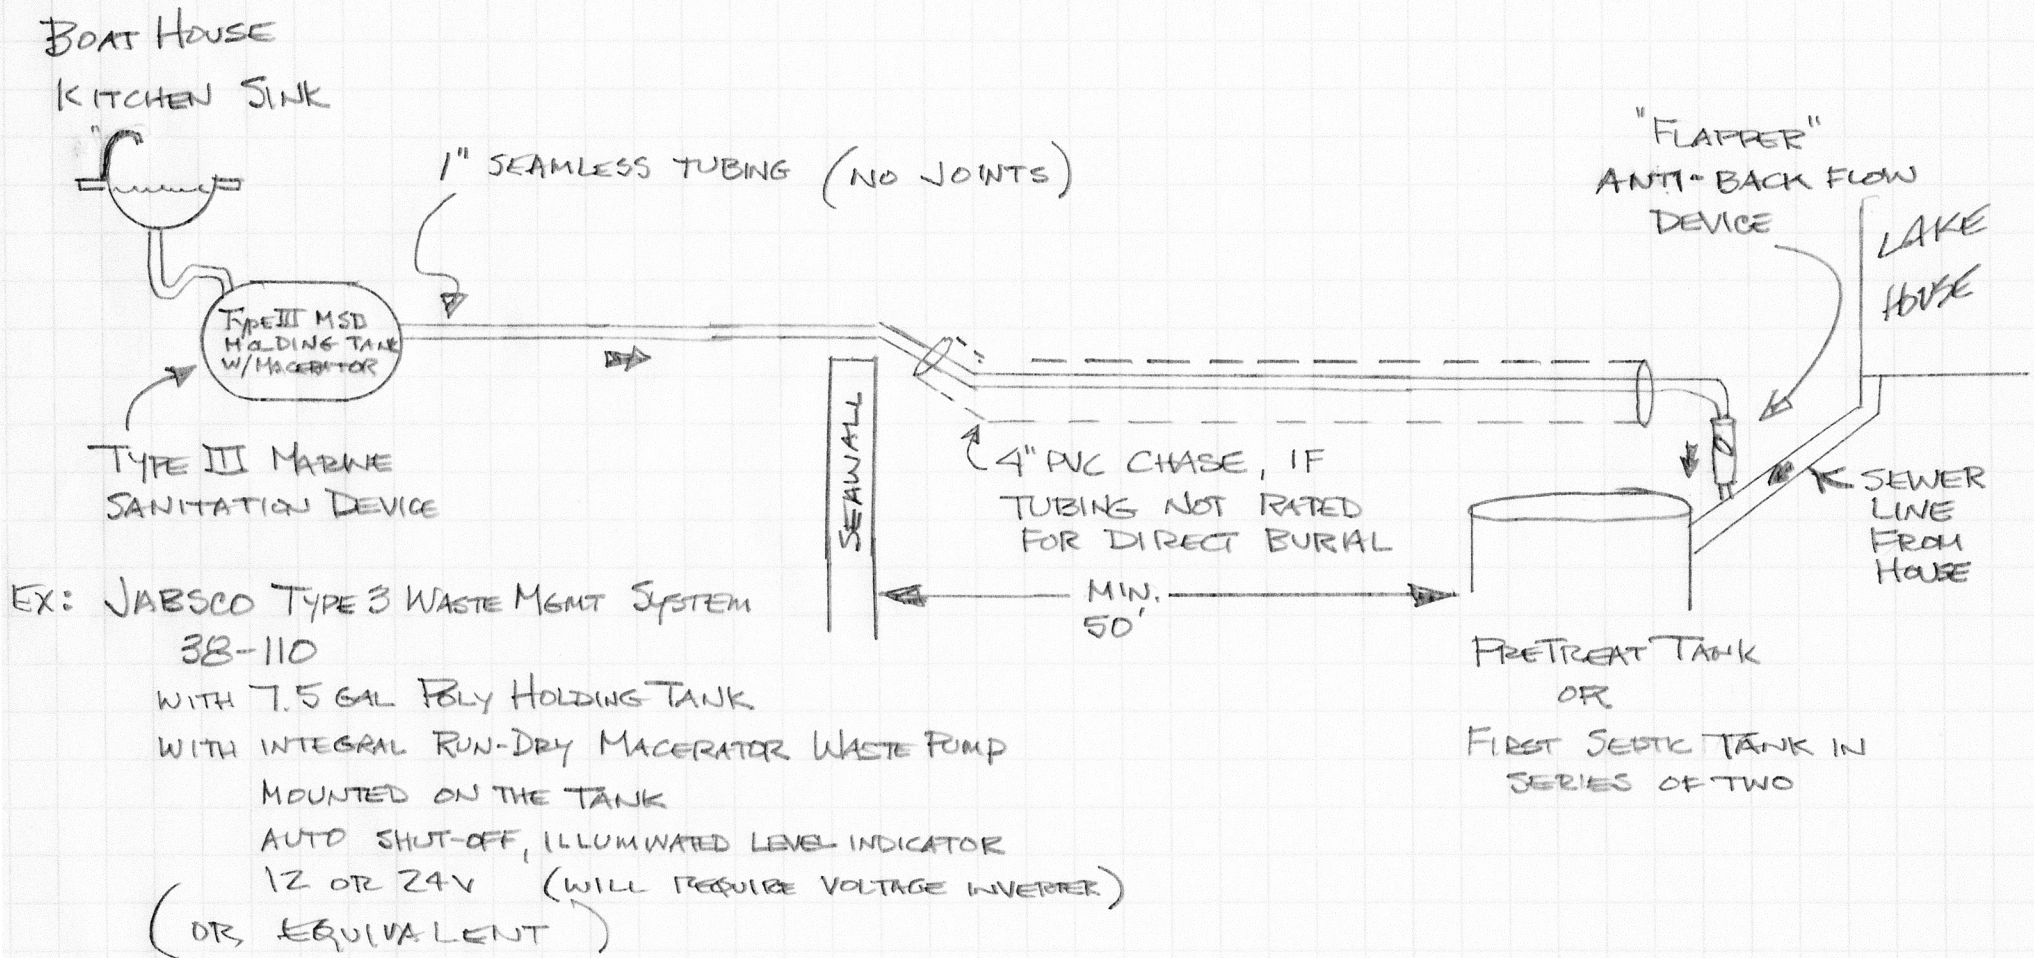 BOAT HOUSE
KITCHEN SINK
1" SEAMLESS TUBING (NO JOINTS)
"FLAPPER"
ANTI-BACK FLOW
DEVICE
LAKE
HOUSE
TYPE III MSD
HOLDING TANK
W/MACERATOR
TYPE III MARINE
SANITATION DEVICE
SEAWALL
4" PVC CHASE, IF
TUBING NOT RATED
FOR DIRECT BURIAL
SEWER
LINE
FROM
HOUSE
MIN.
50'
EX: JABSCO TYPE 3 WASTE MGMT SYSTEM
38-110
WITH 7.5 GAL POLY HOLDING TANK
WITH INTEGRAL RUN-DRY MACERATOR WASTE PUMP
MOUNTED ON THE TANK
AUTO SHUT-OFF, ILLUMINATED LEVEL INDICATOR
12 OR 24V (WILL REQUIRE VOLTAGE INVERTER)
(OR EQUIVALENT)
PRETREAT TANK
OR
FIRST SEPTIC TANK IN
SERIES OF TWO